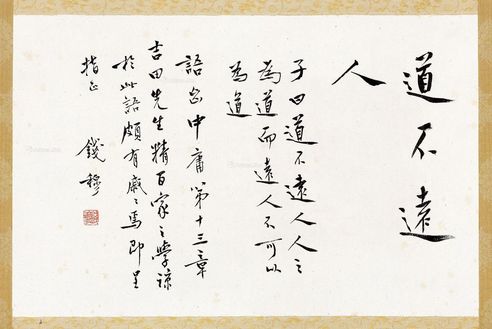 道不遠
人
子曰道不遠人人之
為道而遠人不可以
為道
語出中庸第十三章
吉田先生精百家之學諒
於此語頗有感焉即呈
指正
錢穆